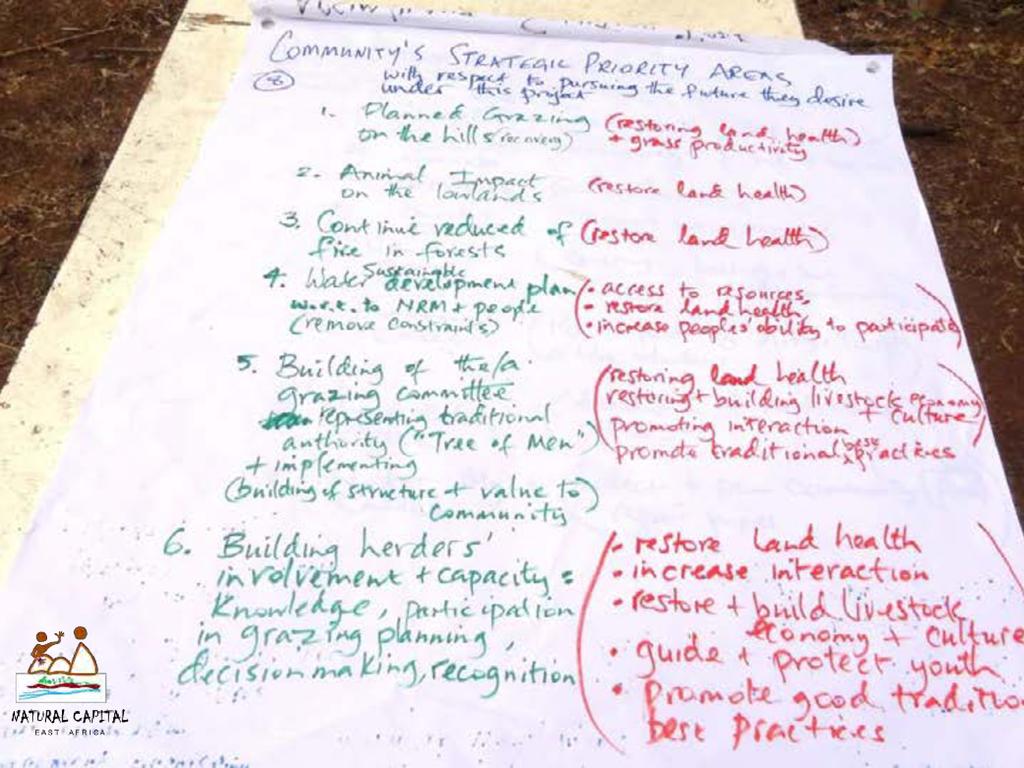 COMMUNITY'S STRATEGIC PRIORITY AREAS
8 with respect to pursuing the future they desire
under this project
1. Planned Grazing (restoring land health)
on the hills (recovery) + grass productivity
2. Animal Impact (restore land health)
on the lowlands
3. Continue reduced of (restore land health)
fire in forests
4. Water Sustainable development plan
w.r.t. to NRM + people
(remove constraints)
• access to resources,
• restore land health
• increase peoples' ability to participate
5. Building of the/a
grazing committee
representing traditional
authority ("Tree of Men")
+ implementing
(building of structure + value to
community)
(restoring land health
restoring + building livestock economy
+ culture
promoting interaction
promote traditional best practices
6. Building herders'
involvement + capacity:
Knowledge, participation
in grazing planning,
decision making, recognition
• restore land health
• increase interaction
• restore + build livestock
economy + culture
• guide + protect youth
• Promote good traditio
best Practices
NATURAL CAPITAL
EAST AFRICA